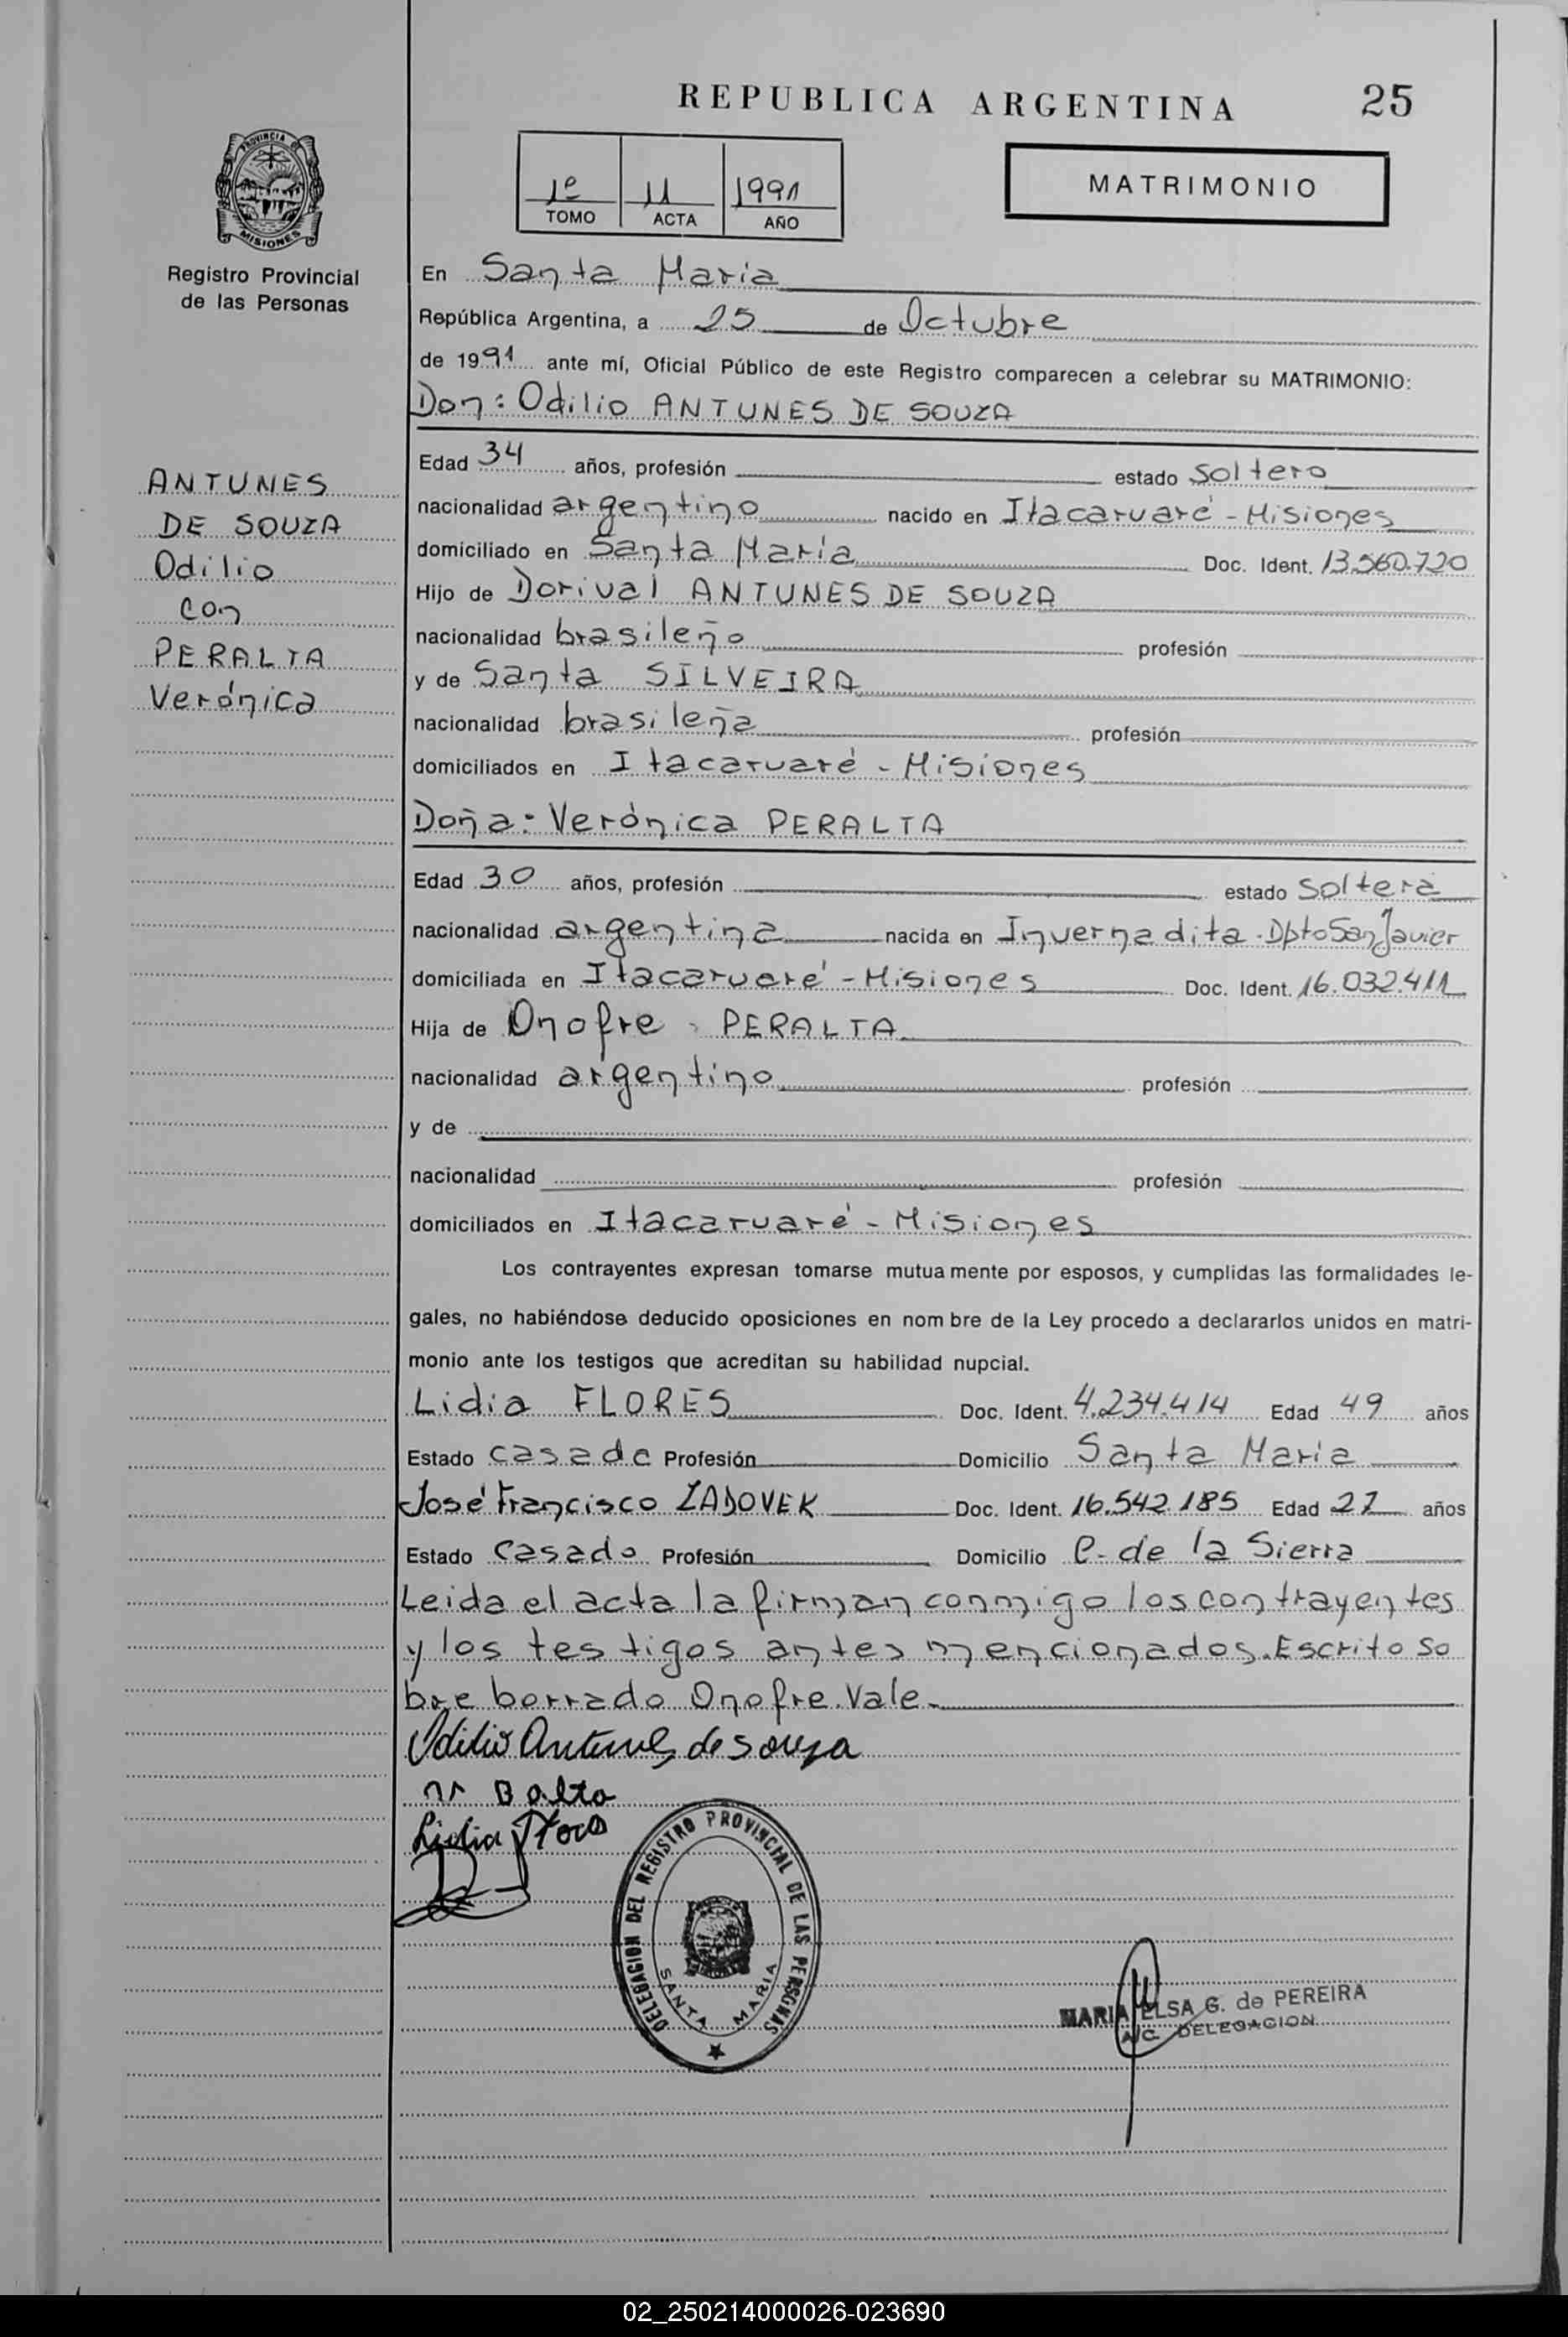 REPUBLICA ARGENTINA
25
PROVINCIA DE
MISIONES
Registro Provincial
de las Personas
1º 11 1991
TOMO ACTA AÑO
MATRIMONIO
En Santa María
República Argentina, a 25 de Octubre
de 1991 ante mí, Oficial Público de este Registro comparecen a celebrar su MATRIMONIO:
Don: Odilio ANTUNES DE SOUZA
ANTUNES
DE SOUZA
Odilio
con
PERALTA
Verónica
Edad 34 años, profesión estado soltero
nacionalidad argentino nacido en Itacaruaré - Misiones
domiciliado en Santa María Doc. Ident. 13.560.720
Hijo de Dorival ANTUNES DE SOUZA
nacionalidad brasileño profesión
y de Santa SILVEIRA
nacionalidad brasileña profesión
domiciliados en Itacaruaré - Misiones
Doña: Verónica PERALTA
Edad 30 años, profesión estado soltera
nacionalidad argentina nacida en Invernadita - Dpto San Javier
domiciliada en Itacaruaré - Misiones Doc. Ident. 16.032.411
Hija de Onofre PERALTA
nacionalidad argentino profesión
y de
nacionalidad profesión
domiciliados en Itacaruaré - Misiones
Los contrayentes expresan tomarse mutuamente por esposos, y cumplidas las formalidades le-
gales, no habiéndose deducido oposiciones en nom bre de la Ley procedo a declararlos unidos en matri-
monio ante los testigos que acreditan su habilidad nupcial.
Lidia FLORES Doc. Ident. 4.234.414 Edad 49 años
Estado casada Profesión Domicilio Santa María
José Francisco ZADOVEK Doc. Ident. 16.542.185 Edad 27 años
Estado casado Profesión Domicilio C. de la Sierra
Leida el acta la firman conmigo los contrayentes
y los testigos antes mencionados. Escrito so
bre borrado Onofre. Vale.
Odilio Antunes de souza
Lidia Flores
DELEGACION DEL REGISTRO PROVINCIAL DE LAS PERSONAS
SANTA MARIA
MARIA ELSA G. de PEREIRA
A/C. DELEGACION
02_250214000026-023690